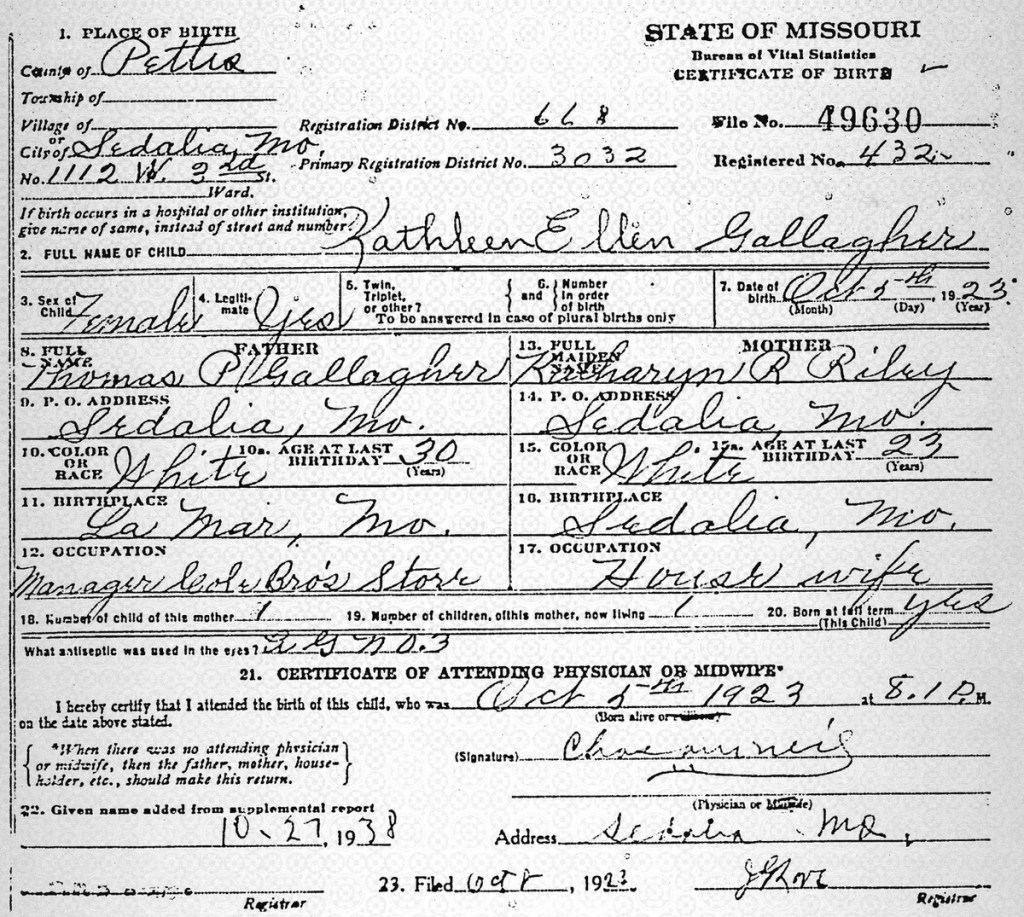 1. PLACE OF BIRTH
County of Pettis
Township of
Village of
or
City of Sedalia, Mo.
No. 1112 W. 3rd St.
Ward.
If birth occurs in a hospital or other institution,
give name of same, instead of street and number.
STATE OF MISSOURI
Bureau of Vital Statistics
CERTIFICATE OF BIRTH
Registration District No. 668
File No. 49630
Primary Registration District No. 3032
Registered No. 432
2. FULL NAME OF CHILD Kathleen Ellen Gallagher
3. Sex of Child Female
4. Legitimate Yes
5. Twin, Triplet, or other?
and
6. Number in order of birth
To be answered in case of plural births only
7. Date of birth Oct 5th, 1923
(Month) (Day) (Year)
FATHER
8. FULL NAME Thomas P Gallagher
9. P. O. ADDRESS
Sedalia, Mo.
10. COLOR OR RACE White
10a. AGE AT LAST BIRTHDAY 30
(Years)
11. BIRTHPLACE
La Mar, Mo.
12. OCCUPATION
Manager Cole Bro's Store
MOTHER
13. FULL MAIDEN NAME Katharyn R Riley
14. P. O. ADDRESS
Sedalia, Mo.
15. COLOR OR RACE White
15a. AGE AT LAST BIRTHDAY 23
(Years)
16. BIRTHPLACE
Sedalia, Mo.
17. OCCUPATION
House wife
18. Number of child of this mother 1
19. Number of children, of this mother, now living 1
20. Born at full term yes
(This Child)
What antiseptic was used in the eyes? No. 3
21. CERTIFICATE OF ATTENDING PHYSICIAN OR MIDWIFE*
I hereby certify that I attended the birth of this child, who was Oct 5th 1923 at 8.1 P. M.
(Born alive or
on the date above stated.
*When there was no attending physician
or midwife, then the father, mother, house-
holder, etc., should make this return.
(Signature)
(Physician or Midwife)
22. Given name added from supplemental report
10-27, 1938
Address Sedalia Mo.
Registrar
23. Filed Oct 8, 1923
Registrar